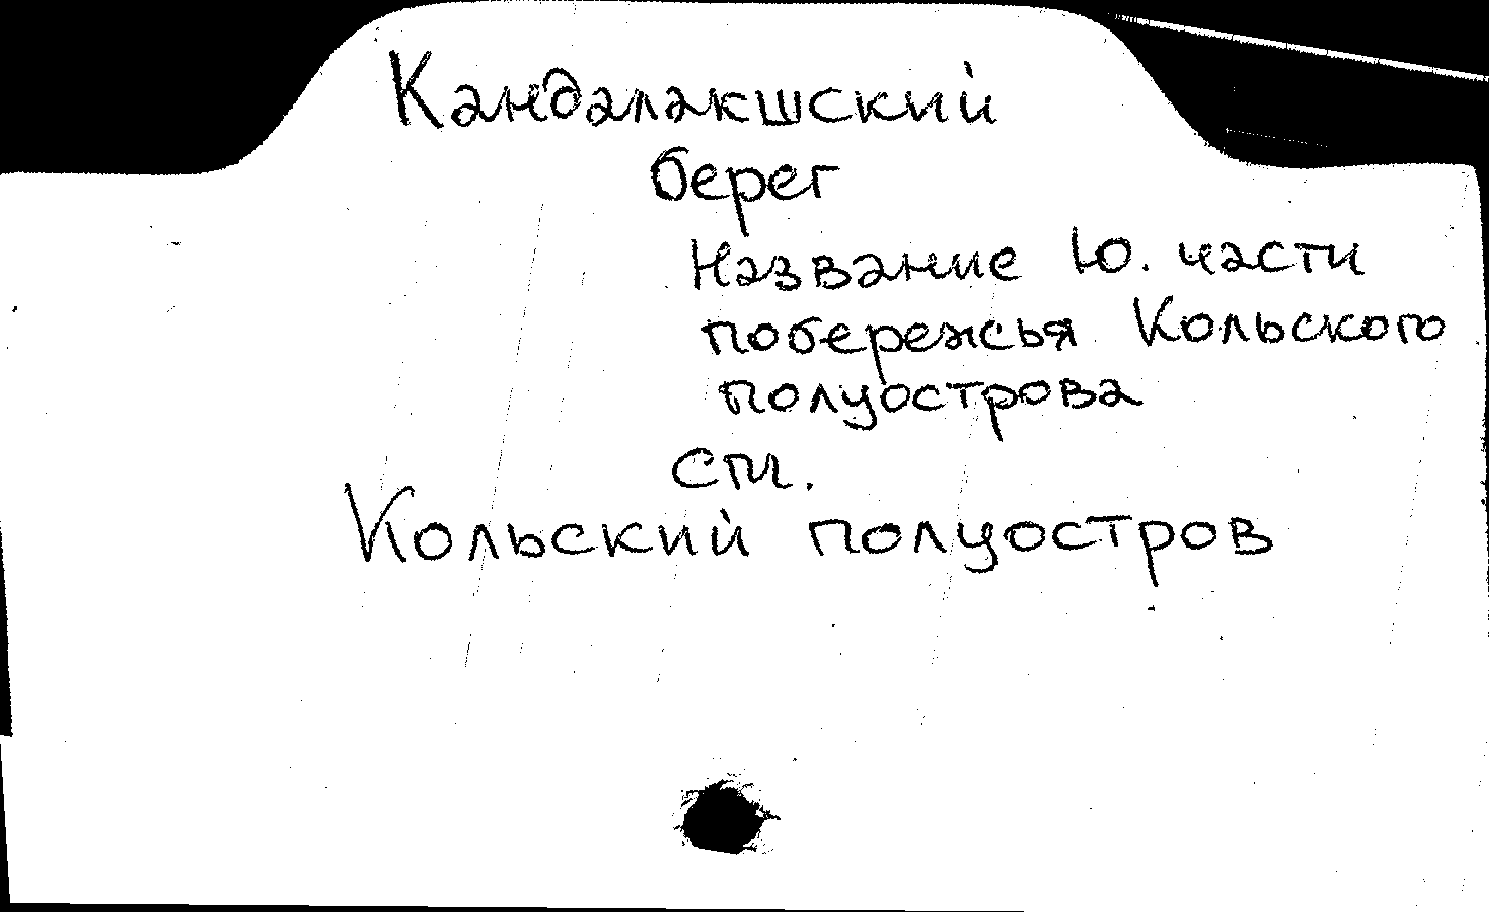 Кандалакшский
берег
Название Ю. части
побережья Кольского
полуострова
см.
Кольский полуостров